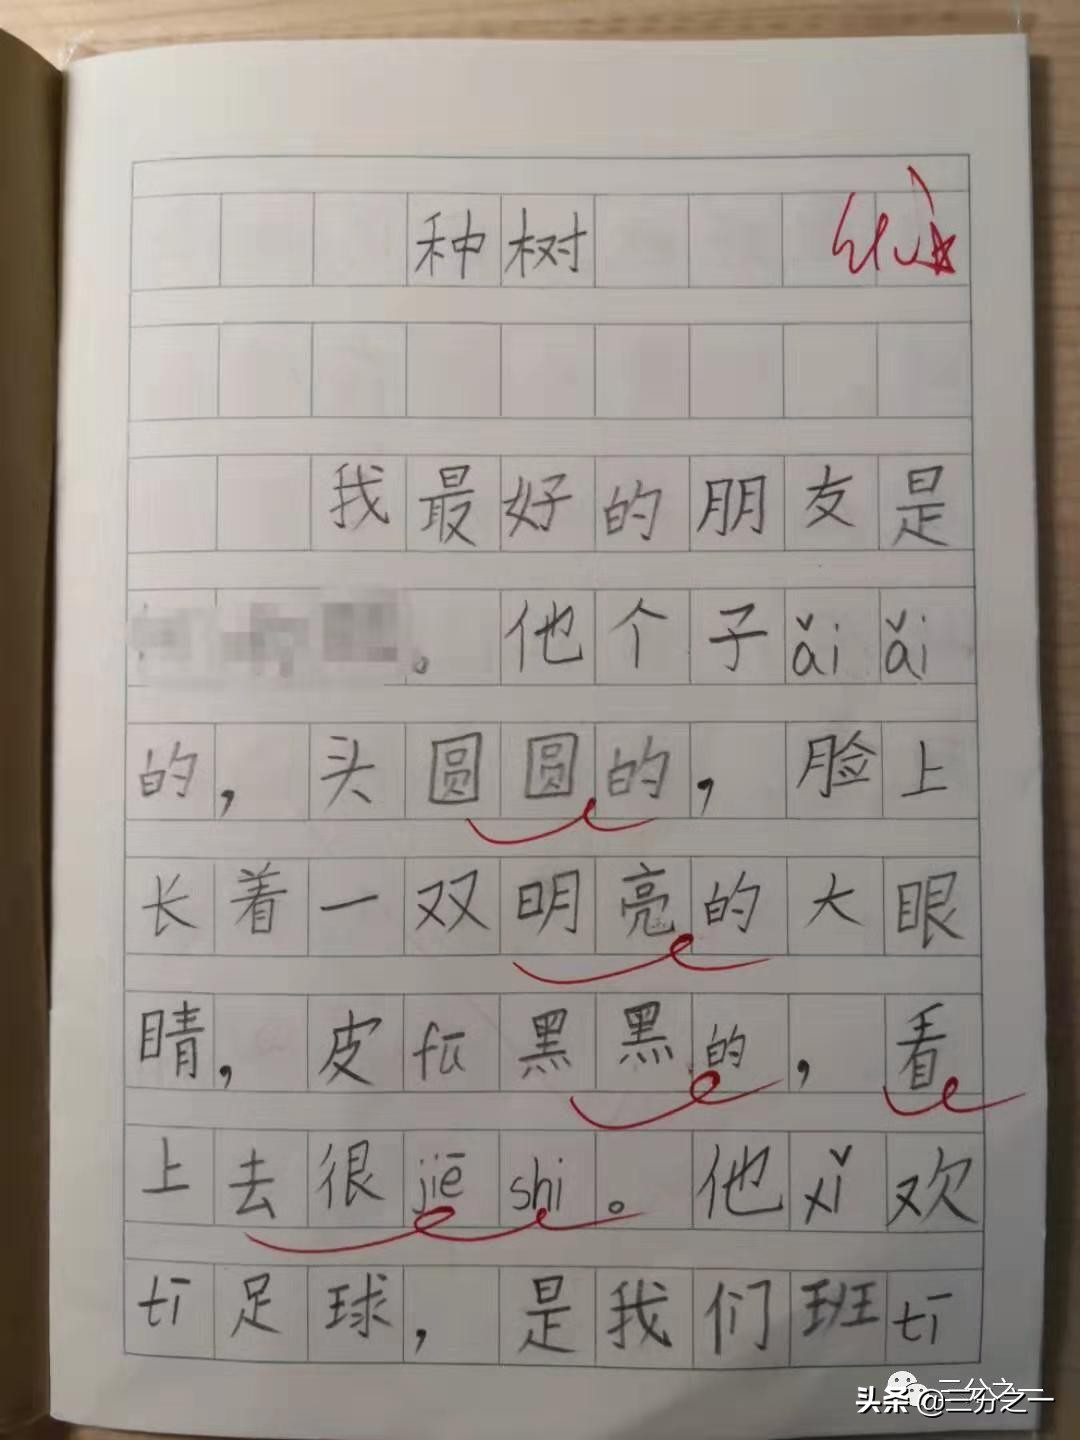 种树
优
我最好的朋友是
。他个子ǎiǎi
的，头圆圆的，脸上
长着一双明亮的大眼
睛，皮fū黑黑的，看
上去很jiēshi。他xǐ欢
tī足球，是我们班tī
三分之一
头条@三分之一